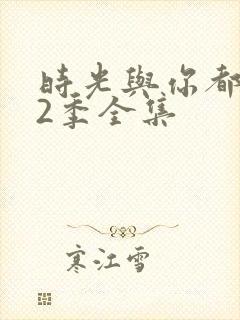 時光與你都
2季全集
寒江雪